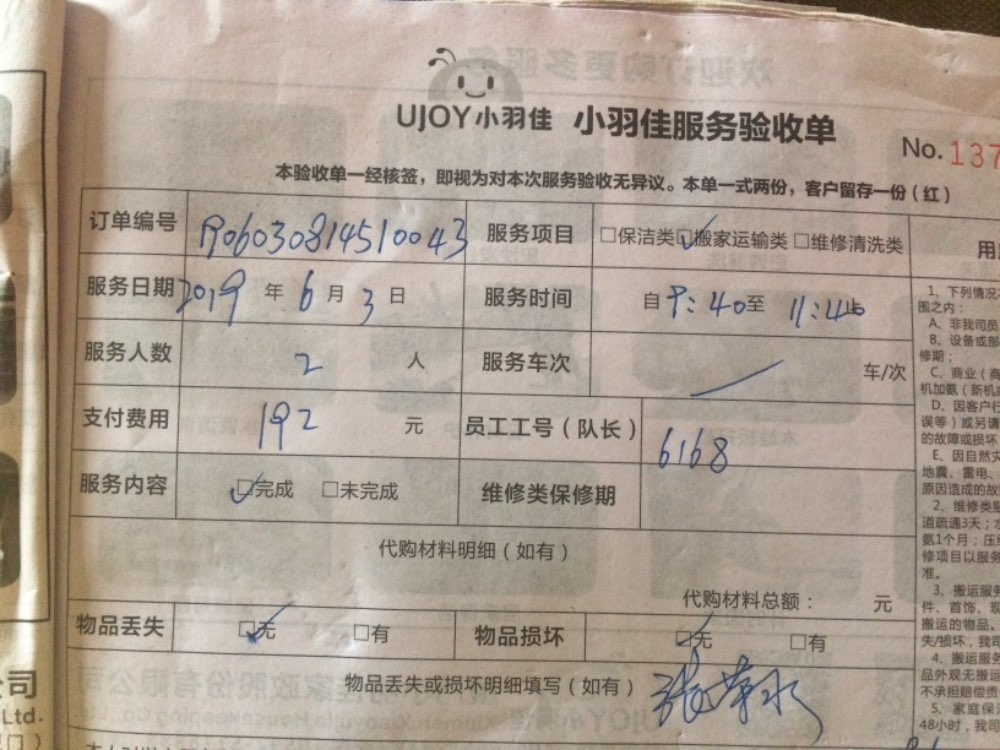 UJOY小羽佳 小羽佳服务验收单
No. 137
本验收单一经核签，即视为对本次服务验收无异议。本单一式两份，客户留存一份（红）
订单编号 1906030814510043 服务项目 □保洁类 ☑搬家运输类 □维修清洗类
服务日期 2019 年 6 月 3 日 服务时间 自 9:40 至 11:40 止
服务人数 2 人 服务车次 / 车/次
支付费用 192 元 员工工号（队长） 6168
服务内容 ☑完成 □未完成 维修类保修期
代购材料明细（如有）
代购材料总额： 元
物品丢失 ☑无 □有 物品损坏 ☑无 □有
物品丢失或损坏明细填写（如有）
1、下列情况
围之内：
A、非我司员
B、设备或部
修期；
C、商业（商
机加氨（新机
D、因客户行
误等）或另请
的故障或损坏
E、因自然灾
地震、雷电、
原因造成的故
2、维修类服
道疏通3天；水
氨1个月；压缩
修项目以服务
准。
3、搬运服务
件、首饰、现
搬运的物品。
失/损坏，我司
4、搬运服务
品外观无搬运
不承担赔偿责
5、家庭保洁
48小时，我司
司
Ltd.